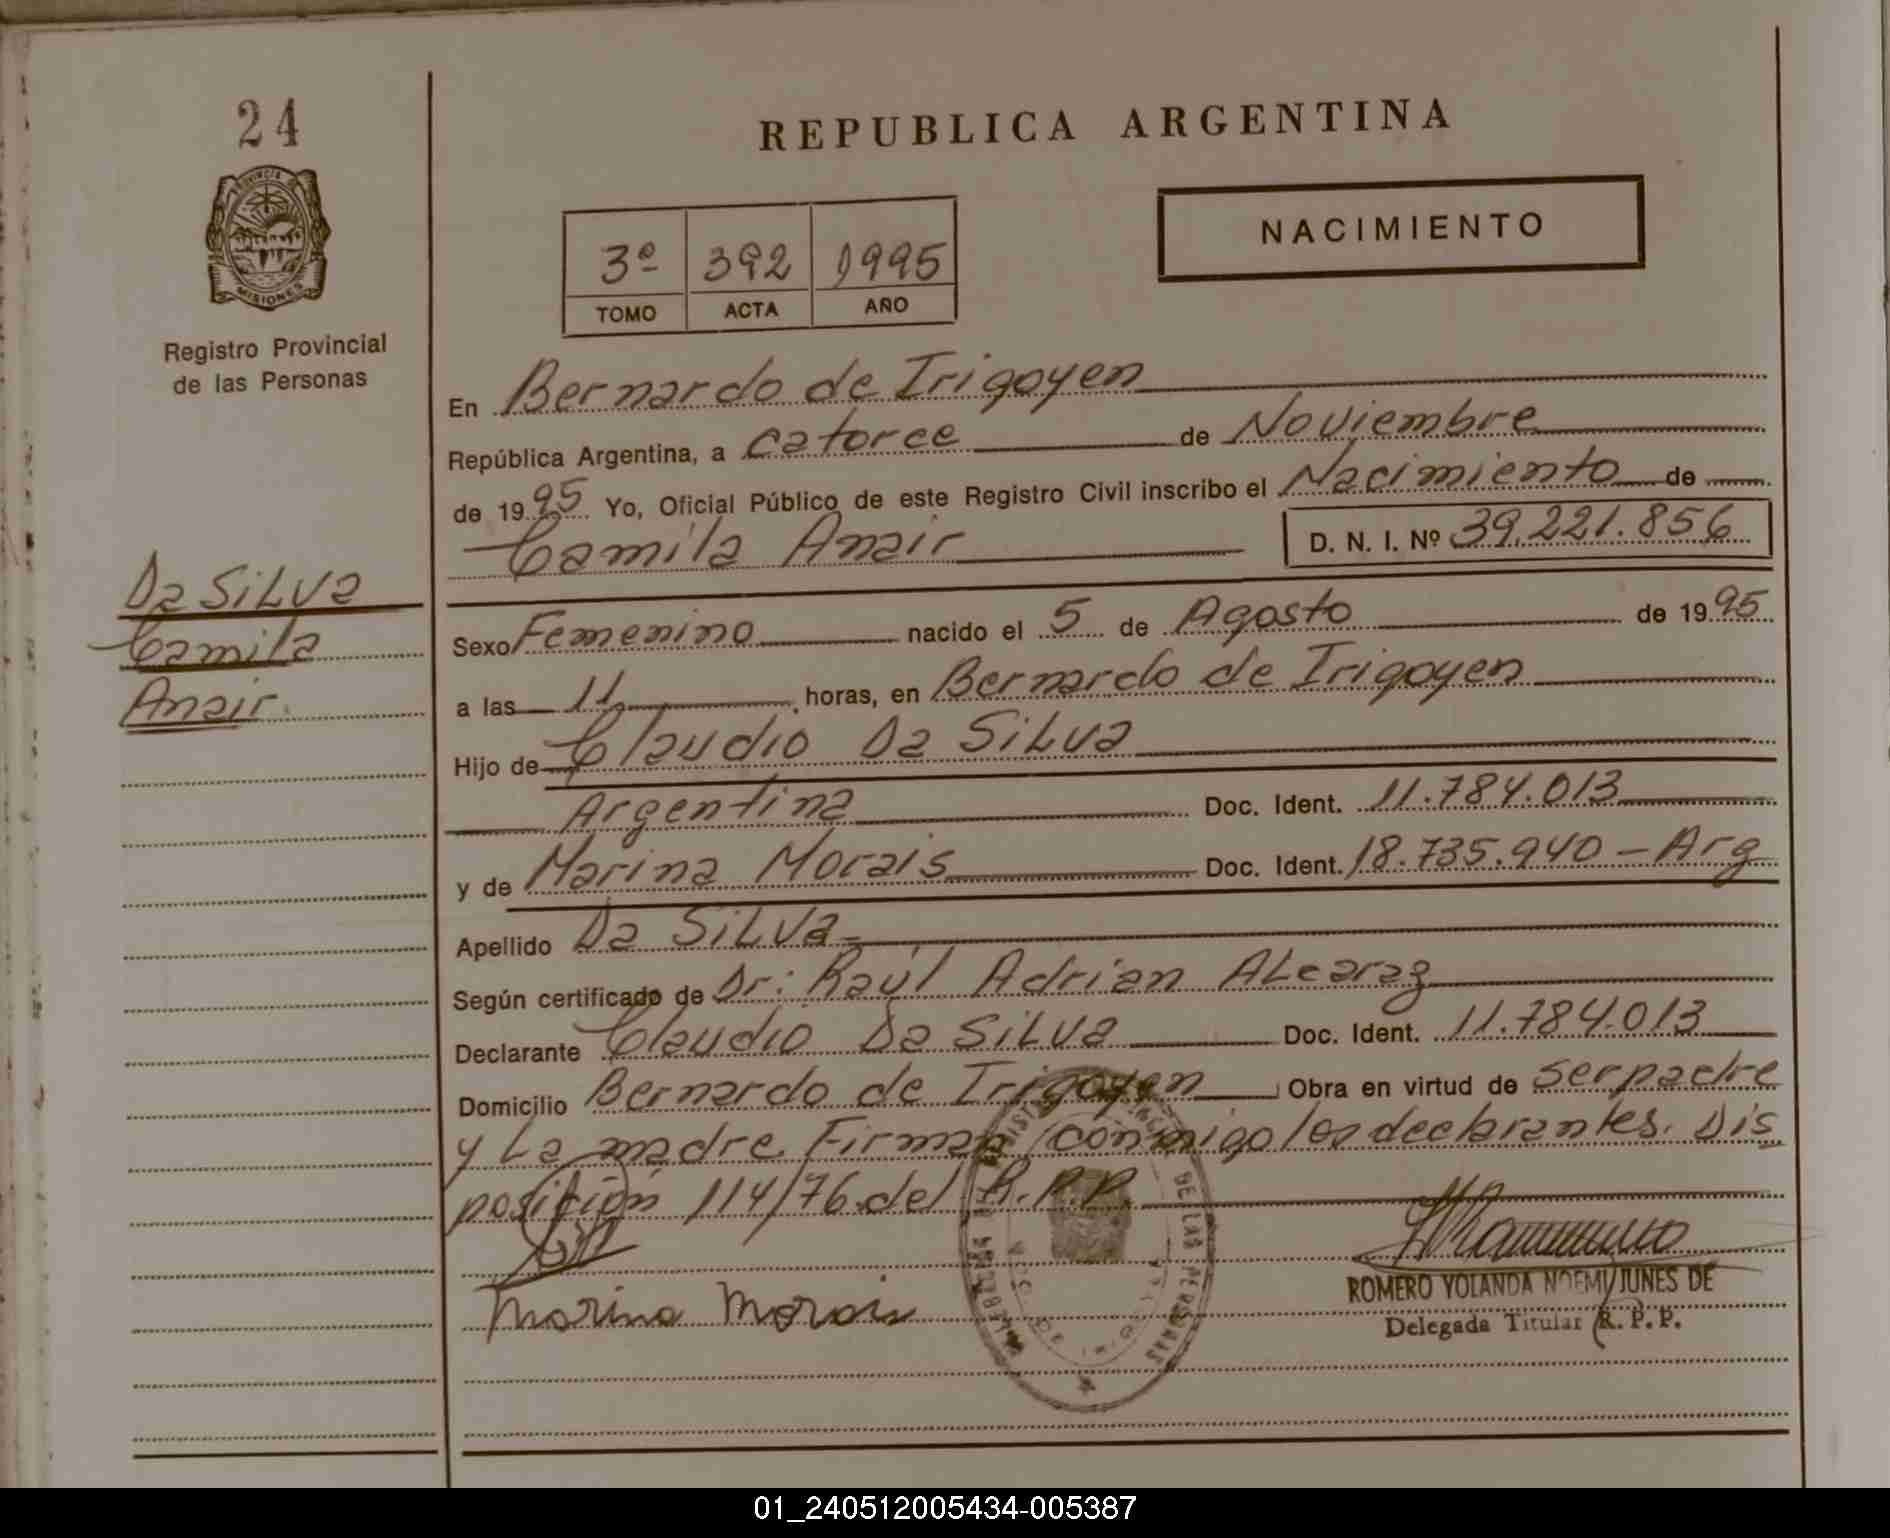 24
PROVINCIA DE
MISIONES
Registro Provincial
de las Personas
Da Silva
Camila
Anair.
REPUBLICA ARGENTINA
NACIMIENTO
3º 392 1995
TOMO ACTA AÑO
En Bernardo de Irigoyen
República Argentina, a catorce de Noviembre
de 1995 Yo, Oficial Público de este Registro Civil inscribo el Nacimiento de
Camila Anair D. N. I. Nº 39.221.856
Sexo Femenino nacido el 5 de Agosto de 1995
a las 11 horas, en Bernardo de Irigoyen
Hijo de Claudio Da Silva
Argentina Doc. Ident. 11.784.013
y de Marina Morais Doc. Ident. 18.735.940 - Arg
Apellido Da Silva
Según certificado de Dr: Raúl Adrian Alcaraz
Declarante Claudio Da Silva Doc. Ident. 11.784.013
Domicilio Bernardo de Irigoyen Obra en virtud de ser padre
y la madre. Firman conmigo los declarantes. Dis
posición 114/76 del R.P.P.
Marina Morais
ROMERO YOLANDA NOEMI JUNES DE
Delegada Titular R. P. P.
DE LAS PERSONAS
01_240512005434-005387